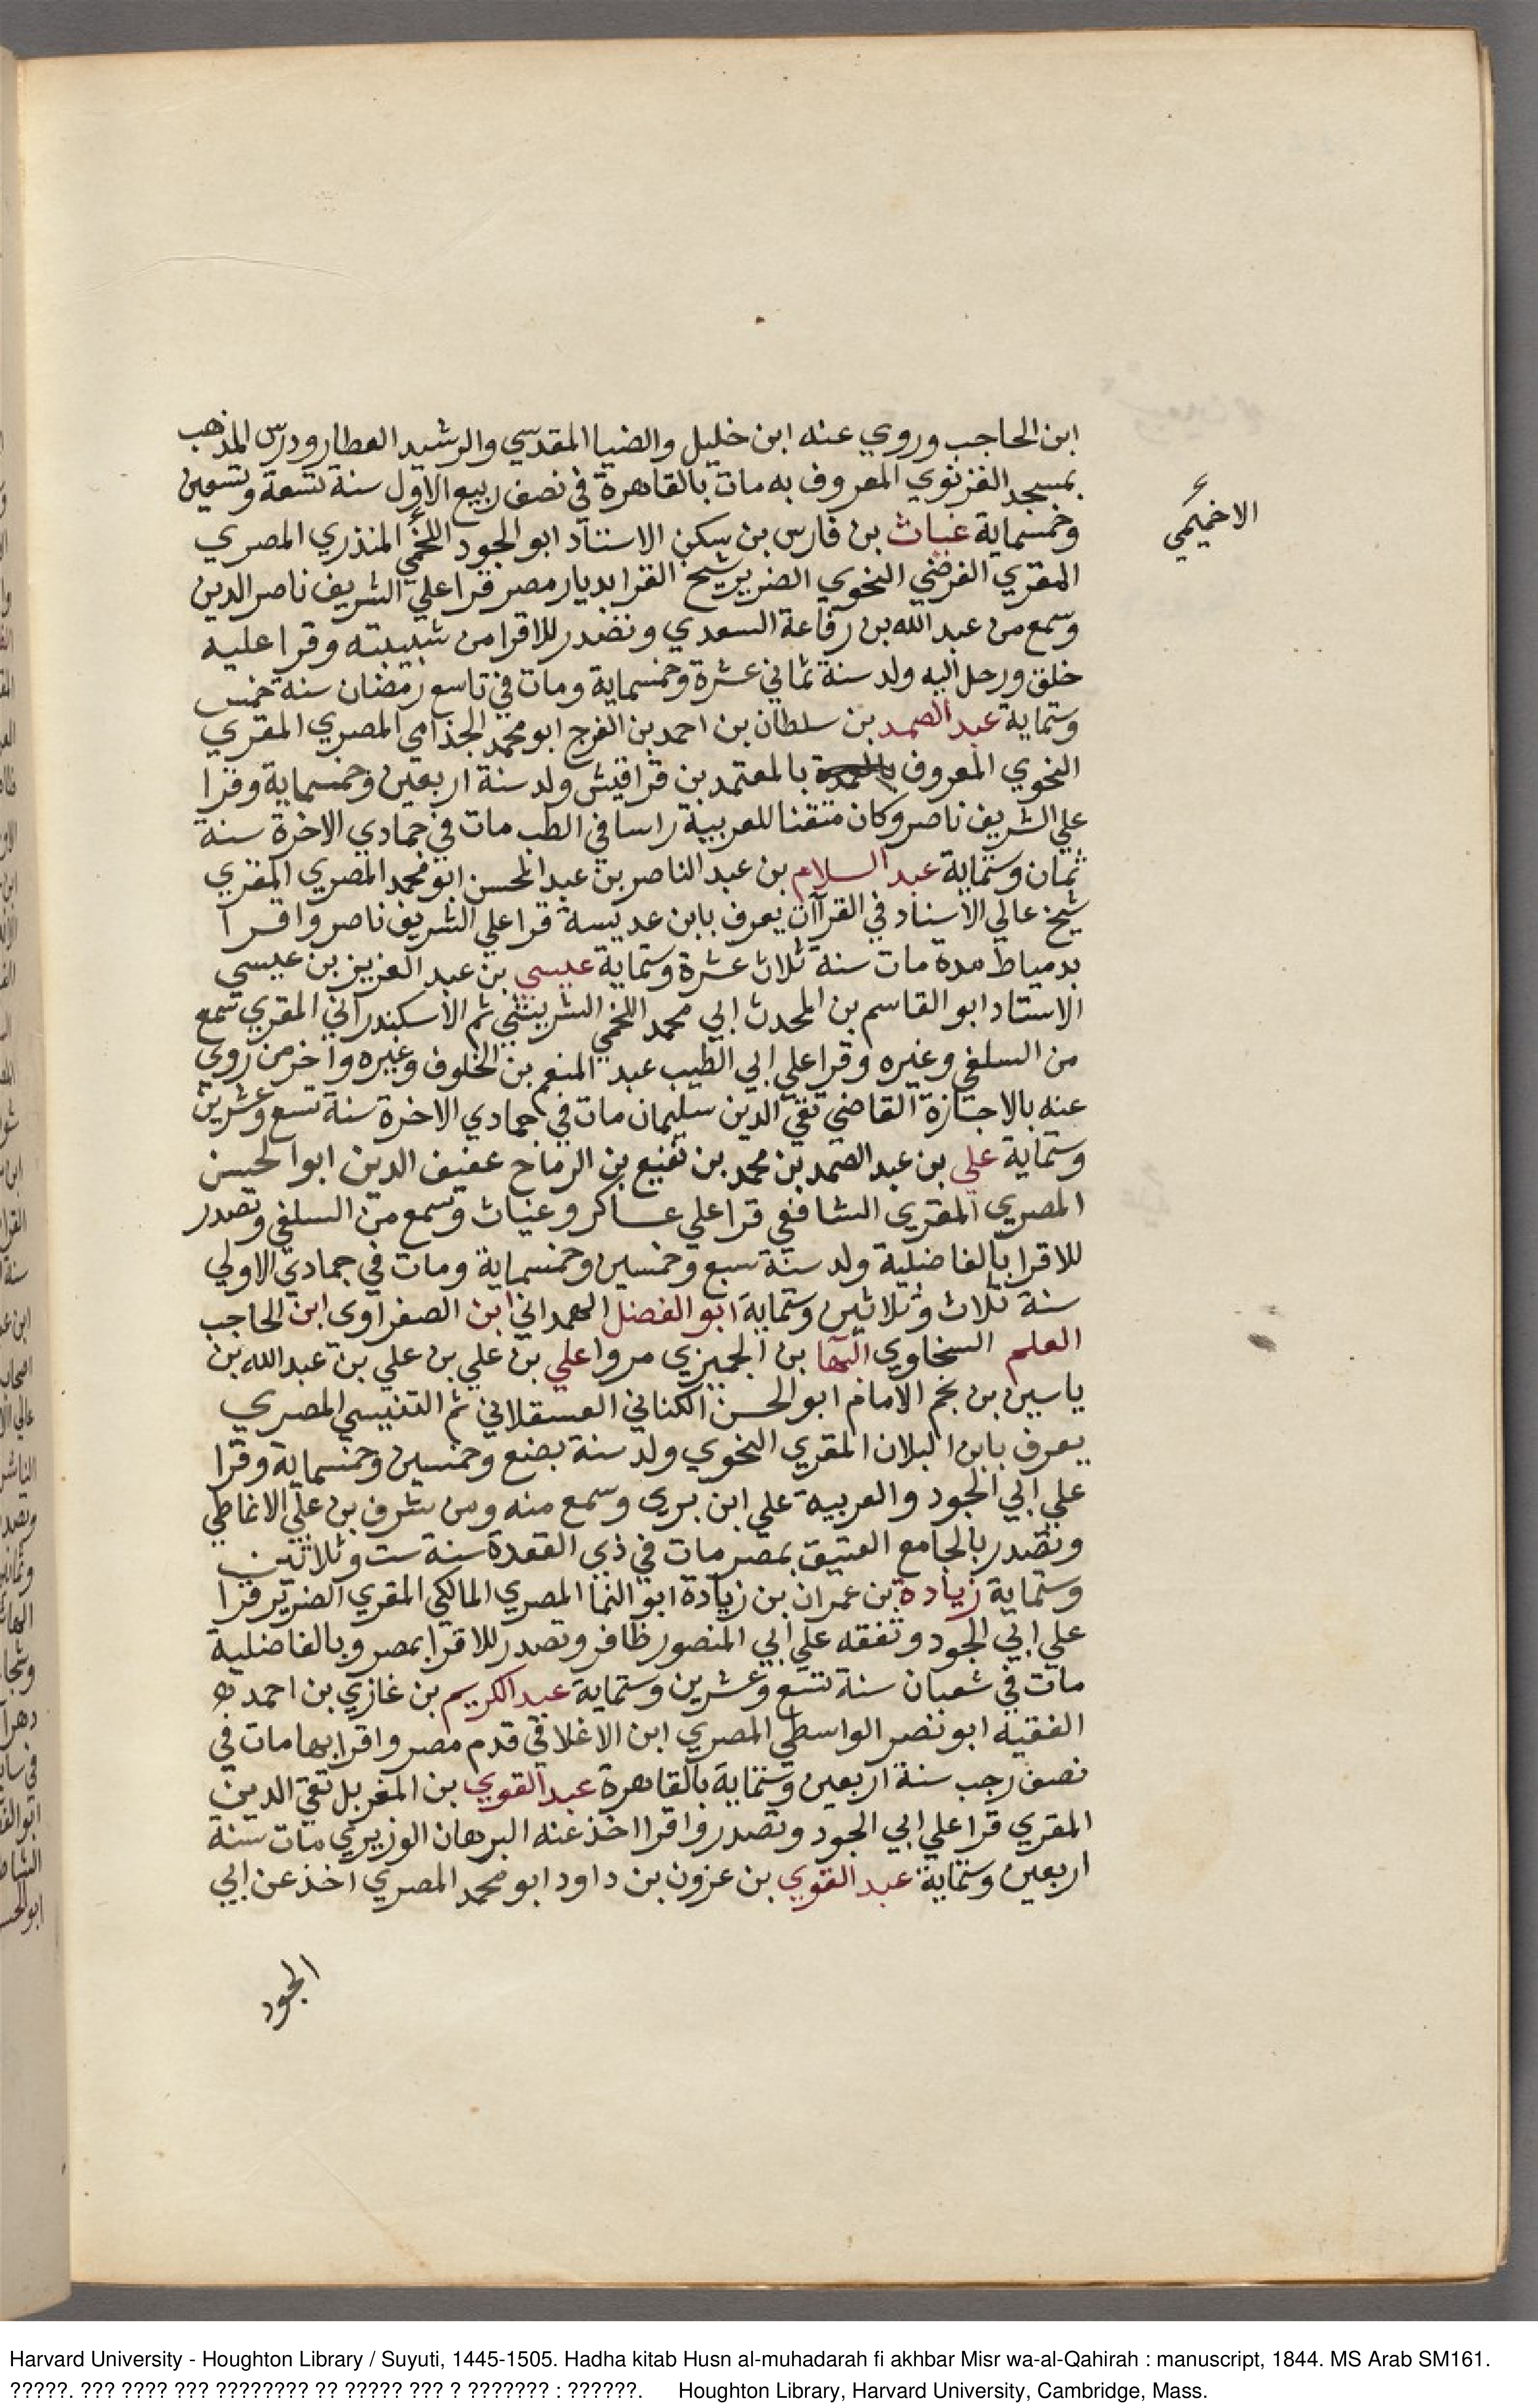 ابن الحاجب وروي عنه ابن خليل والضيا المقدسي والرشيد العطار ودرس المذهب
بمسجد الغزنوي المعروف به مات بالقاهرة في نصف ربيع الاول سنة تسعة وتسعين
وخمسماية غياث بن فارس بن سكن الاستاد ابو الجود اللخمي المنذري المصري
الاخميمي
المقري الفرضي النخوي الضرير شيخ القرا بديار مصر قرا علي الشريف ناصر الدين
وسمع من عبد الله بن رفاعة السعدي ونضدر للاقرا من شبيبته وقرا عليه
خلق ورحل اليه ولد سنة ثماني عشرة وخمسماية ومات في تاسع رمضان سنة خمس
وستماية عبد الصمد بن سلطان بن احمد بن الفرج ابو محمد الجذامي المصري المقري
النحوي المعروف بالمعتمد بن قراقيش ولد سنة اربعين وخمسماية وقرا
علي الشريف ناصر وكان متقنا للعربية راسا في الطب مات في جمادي الاخرة سنة
ثمان وستماية عبد السلام بن عبد الناصر بن عبد المحسن ابو محمد المصري المقري
شيخ عالي الاسناد في القراآت يعرف بابن عديسة قرا علي الشريف ناصر واقرا
بدمياط مدة مات سنة ثلاث عشرة وستماية عيسي بن عبد العزيز بن عيسي
الاستاد ابو القاسم بن المحدث ابي محمد اللخمي الشريشي ثم الاسكندراني المقري سمع
من السلفي وغيره وقرا علي ابي الطيب عبد المنعم بن الخلوف وغيره واخر من روي
عنه بالاجازة القاضي تقي الدين سليمان مات في جمادي الاخرة سنة تسع وعشرين
وستماية علي بن عبد الصمد بن محمد بن نفيع بن الرماح عفيف الدين ابوالحسن
المصري المقري الشافعي قرا علي عساكر وغياث وسمع من السلفي وتصدر
للاقرا بالفاضلية ولد سنة سبع وخمسين وخمسماية ومات في جمادي الاولي
سنة ثلاث وثلاثين وستماية ابو الفضل الهمداني ابن الصفراوي ابن الحاجب
العلم السخاوي البها بن الجميزي مروا علي بن علي بن علي بن عبدالله بن
ياسين بن نجم الامام ابو الحسن الكناني العسقلاني ثم التنيسي المصري
يعرف بابن البلان المقري النخوي ولد سنة بضع وخمسين وخمسماية وقرا
علي ابي الجود والعربيه علي ابن بري وسمع منه ومن شرف بن علي الانماطي
ونصدر بالجامع العتيق بمصر مات في ذي القعدة سنة ست وثلاثين
وستماية زيادة بن عمران بن زيادة ابو النما المصري المالكي المقري الضرير قرا
علي ابي الجود وتفقه علي ابي المنصور ظافر وتصدر للاقرا بمصر وبالفاضلية
مات في شعبان سنة تسع وعشرين وستماية عبد الكريم بن غازي بن احمد
الفقيه ابو نصر الواسطي المصري ابن الاغلاقي قدم مصر واقرا بها مات في
نصف رجب سنة اربعين وستماية بالقاهرة عبد القوي بن المغربل تقي الدين
المقري قرا علي ابي الجود وتصدر واقرا اخذ عنه البرهان الوزيري مات سنة
اربعين وستماية عبد القوي بن عزون بن داود ابو محمد المصري اخذ عن ابي
الجود
Harvard University - Houghton Library / Suyuti, 1445-1505. Hadha kitab Husn al-muhadarah fi akhbar Misr wa-al-Qahirah : manuscript, 1844. MS Arab SM161.
?????. ??? ???? ??? ???????? ?? ????? ??? ? ??????? : ??????. Houghton Library, Harvard University, Cambridge, Mass.